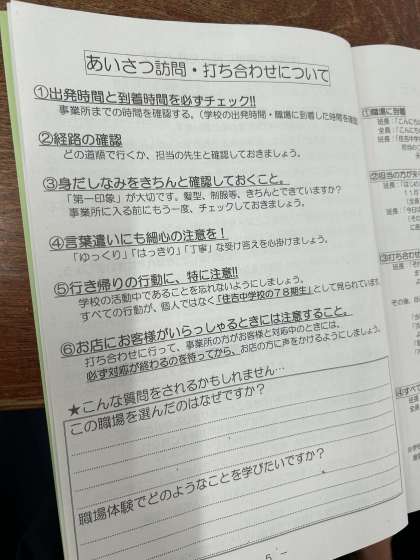 あいさつ訪問・打ち合わせについて
①出発時間と到着時間を必ずチェック!!
事業所までの時間を確認する。(学校の出発時間・職場に到着した時間を確認
②経路の確認
どの道順で行くか、担当の先生と確認しておきましょう。
③身だしなみをきちんと確認しておくこと。
「第一印象」が大切です。髪型、制服等、きちんとできていますか?
事業所に入る前にもう一度、チェックしておきましょう。
④言葉遣いにも細心の注意を!
「ゆっくり」「はっきり」「丁寧」な受け答えを心掛けましょう。
⑤行き帰りの行動に、特に注意!!
学校の活動中であることを忘れないようにしましょう。
すべての行動が、個人ではなく「住吉中学校の78期生」として見られています。
⑥お店にお客様がいらっしゃるときには注意すること。
打ち合わせに行って、事業所の方がお客様と対応中のときには、
必ず対応が終わるのを待ってから、お店の方に声をかけるようにしましょう。
★こんな質問をされるかもしれません…
この職場を選んだのはなぜですか?
職場体験でどのようなことを学びたいですか?
5
①職場に到着
班長:「こんにち
全員:「こんにち
班長:「住吉中学
②担当の方が来
班長:「はじめ
11月
全員:「
班長:「今日
③打ち合わせ
班長:「そ
その後、
④すべて